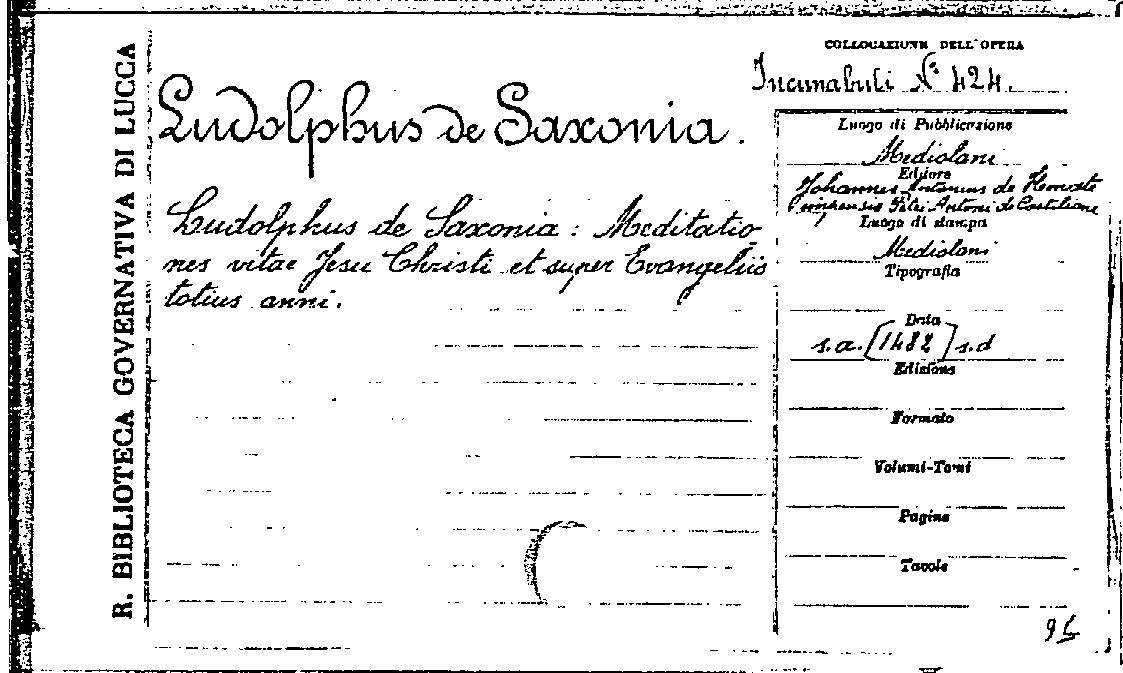 R. BIBLIOTECA GOVERNATIVA DI LUCCA
Ludolphus de Saxonia.
Ludolphus de Saxonia: Meditatio-
nes vitae Jesu Christi et super Evangeliis
totius anni.
COLLOCAZIONE DELL'OPERA
Incunabuli N° 424.
Luogo di Pubblicazione
Mediolani
Editore
Johannes Antonius de
impensis Petri Antonii de Castiliono
Luogo di stampa
Mediolani
Tipografia
Data
s.a. [1482] s.d
Edizione
Formato
Volumi-Tomi
Pagine
Tavole